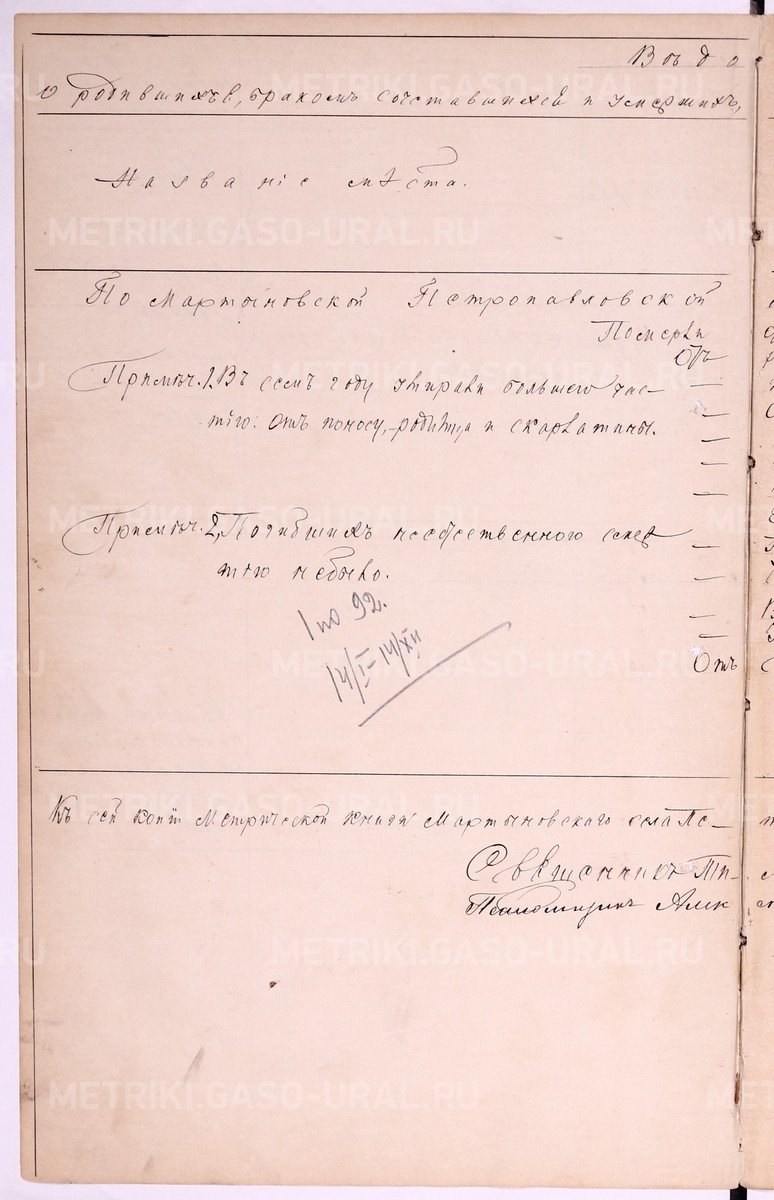 Вѣдо
о родившихся, бракомъ сочетавшихся и умершихъ,
Названіе мѣста.
По Мартыновской Петропавловской
Померли
Отъ
Примѣч. 1. Въ семъ году умирали большею час-
тію: отъ поносу, родимца и скарлатины.
Примѣч. 2, Погибшихъ неестественною смер
тію небыло.
1 по 92.
14/I – 14/XII
Отъ
Къ сей копіи Метрической книги Мартыновскаго села Пе-
Священникъ
Псаломщикъ Алек
METRIKI.GASO-URAL.RU